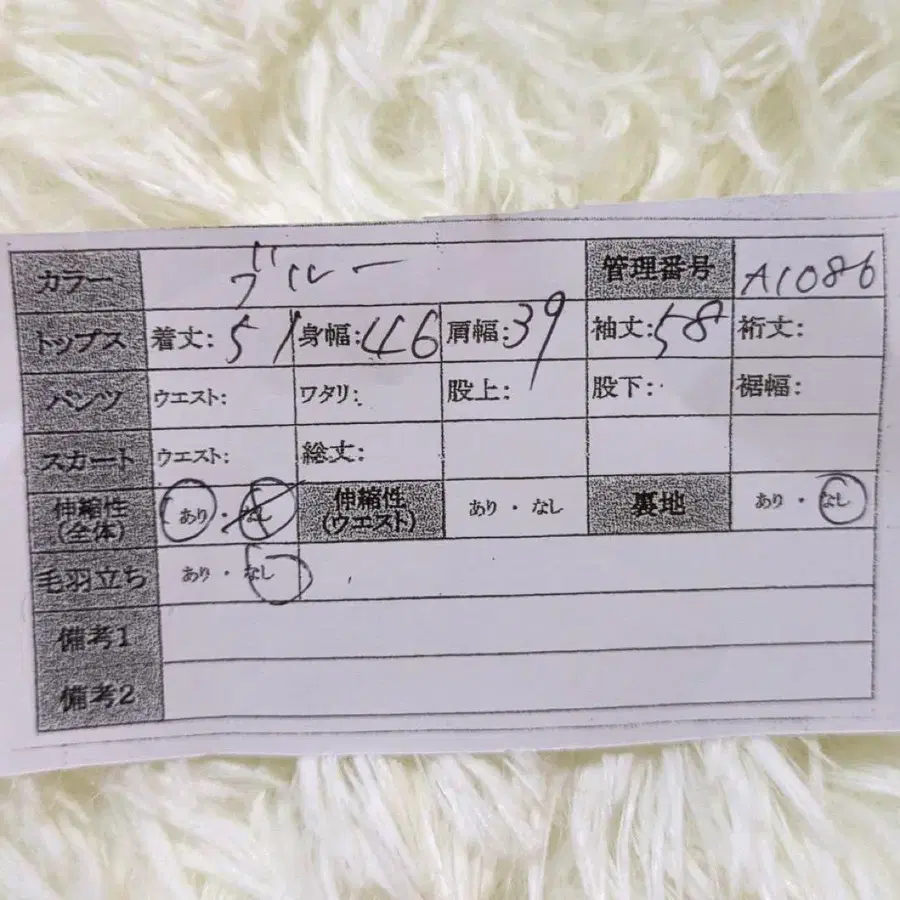 カラー ブルー 管理番号 A1086
トップス 着丈: 51 身幅: 46 肩幅: 39 袖丈: 58 裄丈:
パンツ ウエスト: ワタリ: 股上: 股下: 裾幅:
スカート ウエスト: 総丈:
伸縮性(全体) あり・なし 伸縮性(ウエスト) あり・なし 裏地 あり・なし
毛羽立ち あり・なし
備考1
備考2